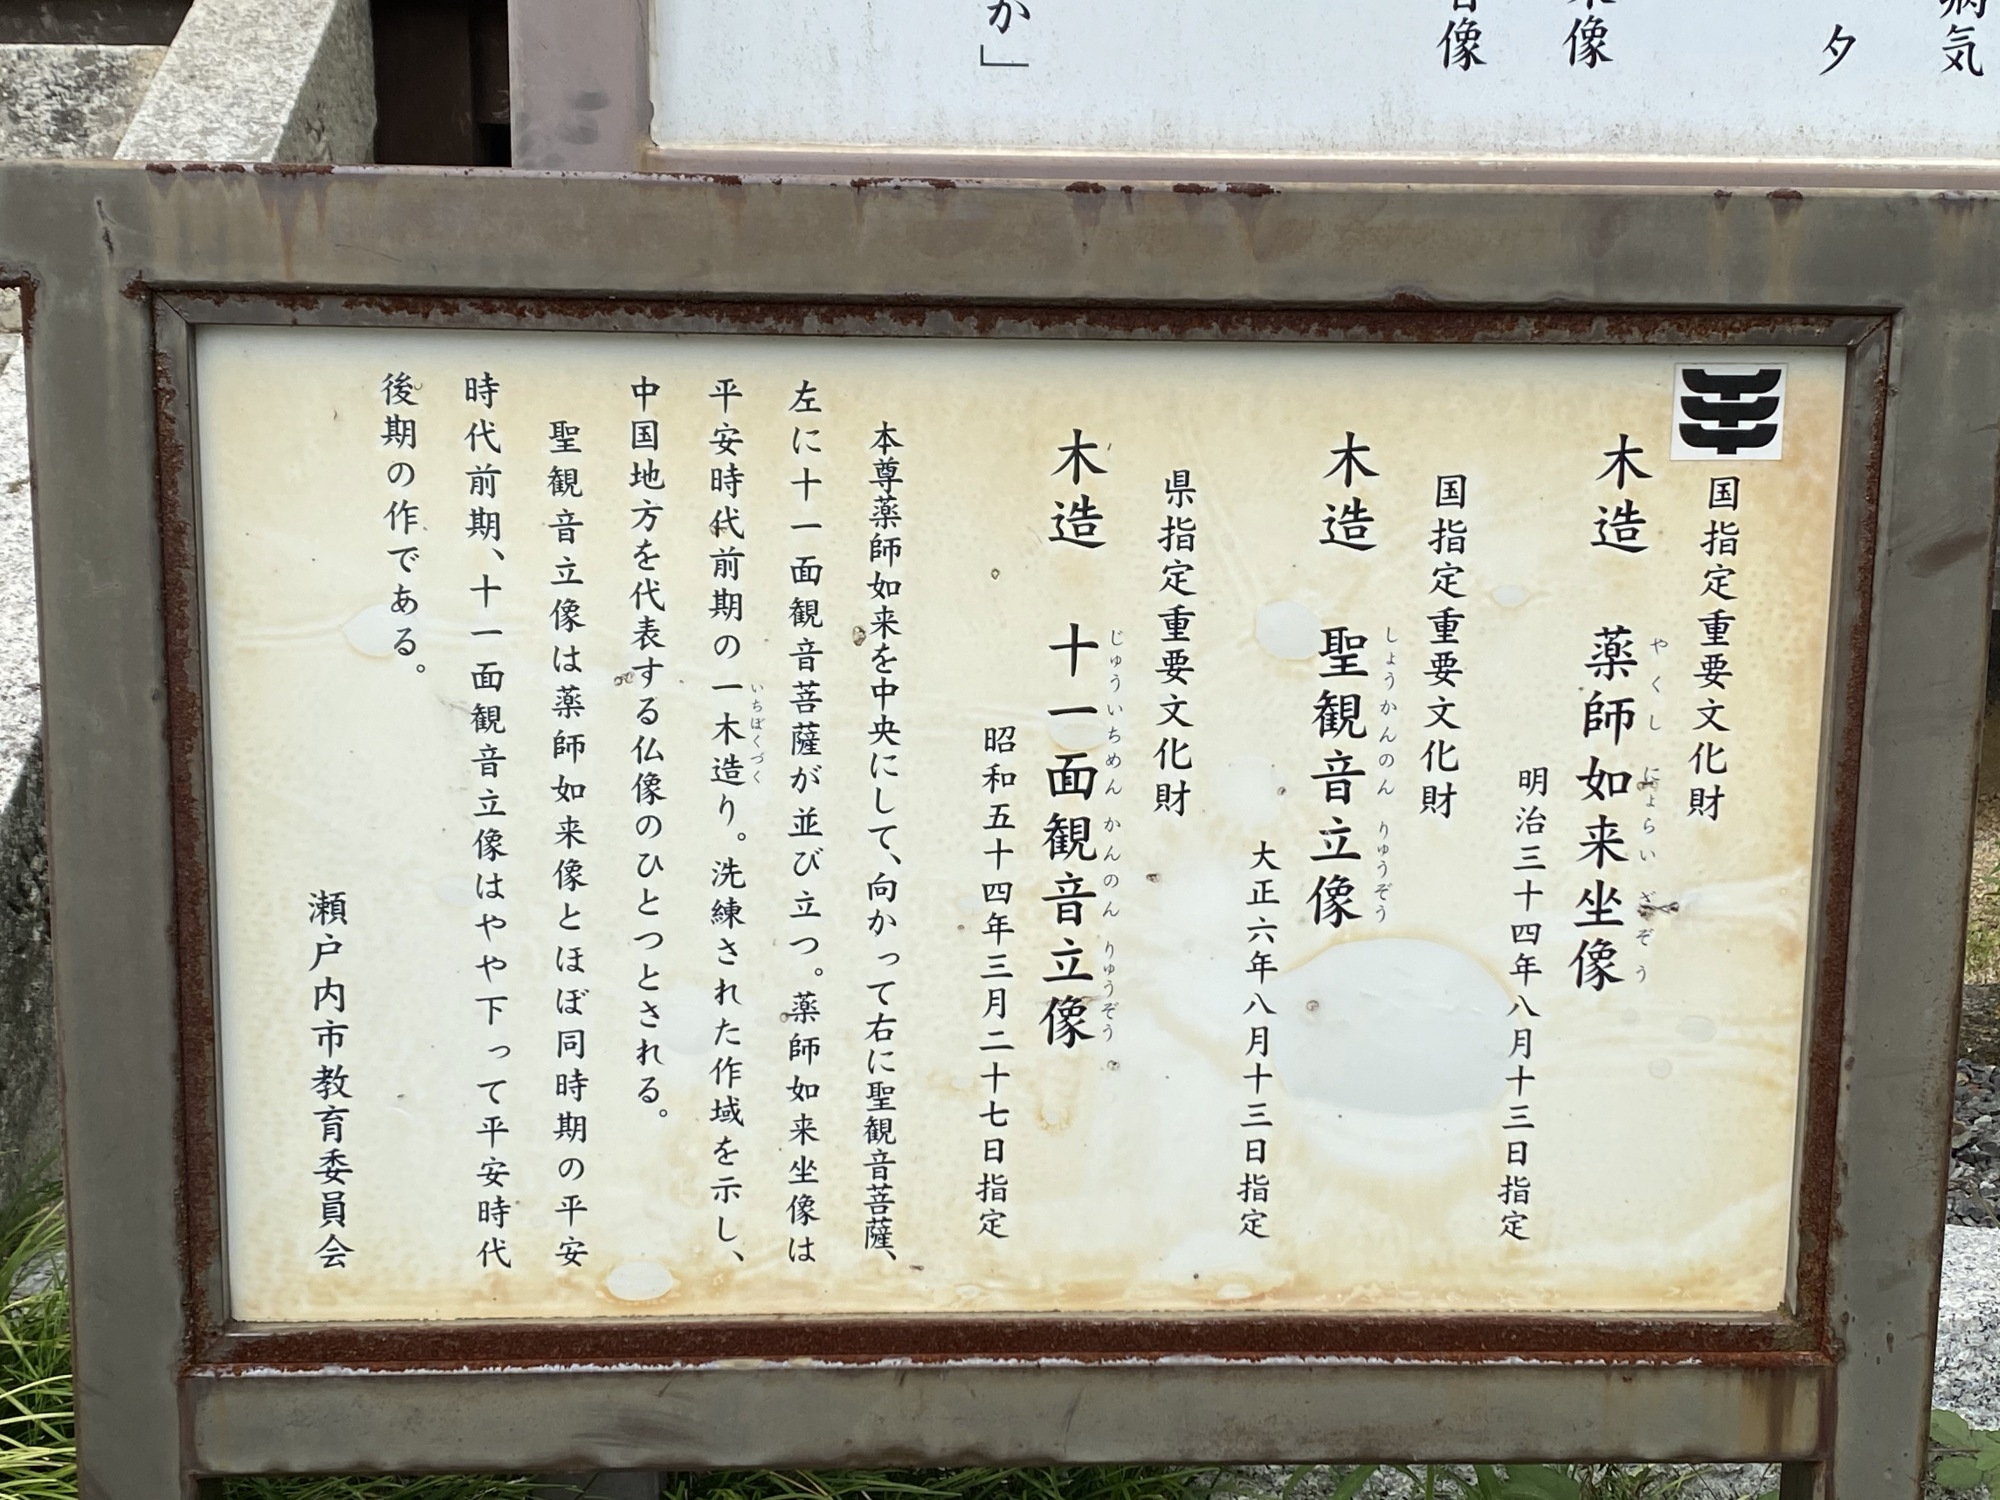 病気
夕
像
像
か」
国指定重要文化財
木造 薬師如来坐像
やくしにょらいざぞう
明治三十四年八月十三日指定
国指定重要文化財
木造 聖観音立像
しょうかんのん りゅうぞう
大正六年八月十三日指定
県指定重要文化財
木造 十一面観音立像
じゅういちめん かんのん りゅうぞう
昭和五十四年三月二十七日指定
本尊薬師如来を中央にして、向かって右に聖観音菩薩、
左に十一面観音菩薩が並び立つ。薬師如来坐像は
平安時代前期の一木造り。洗練された作域を示し、
いちぼくづく
中国地方を代表する仏像のひとつとされる。
聖観音立像は薬師如来像とほぼ同時期の平安
時代前期、十一面観音立像はやや下って平安時代
後期の作である。
瀬戸内市教育委員会